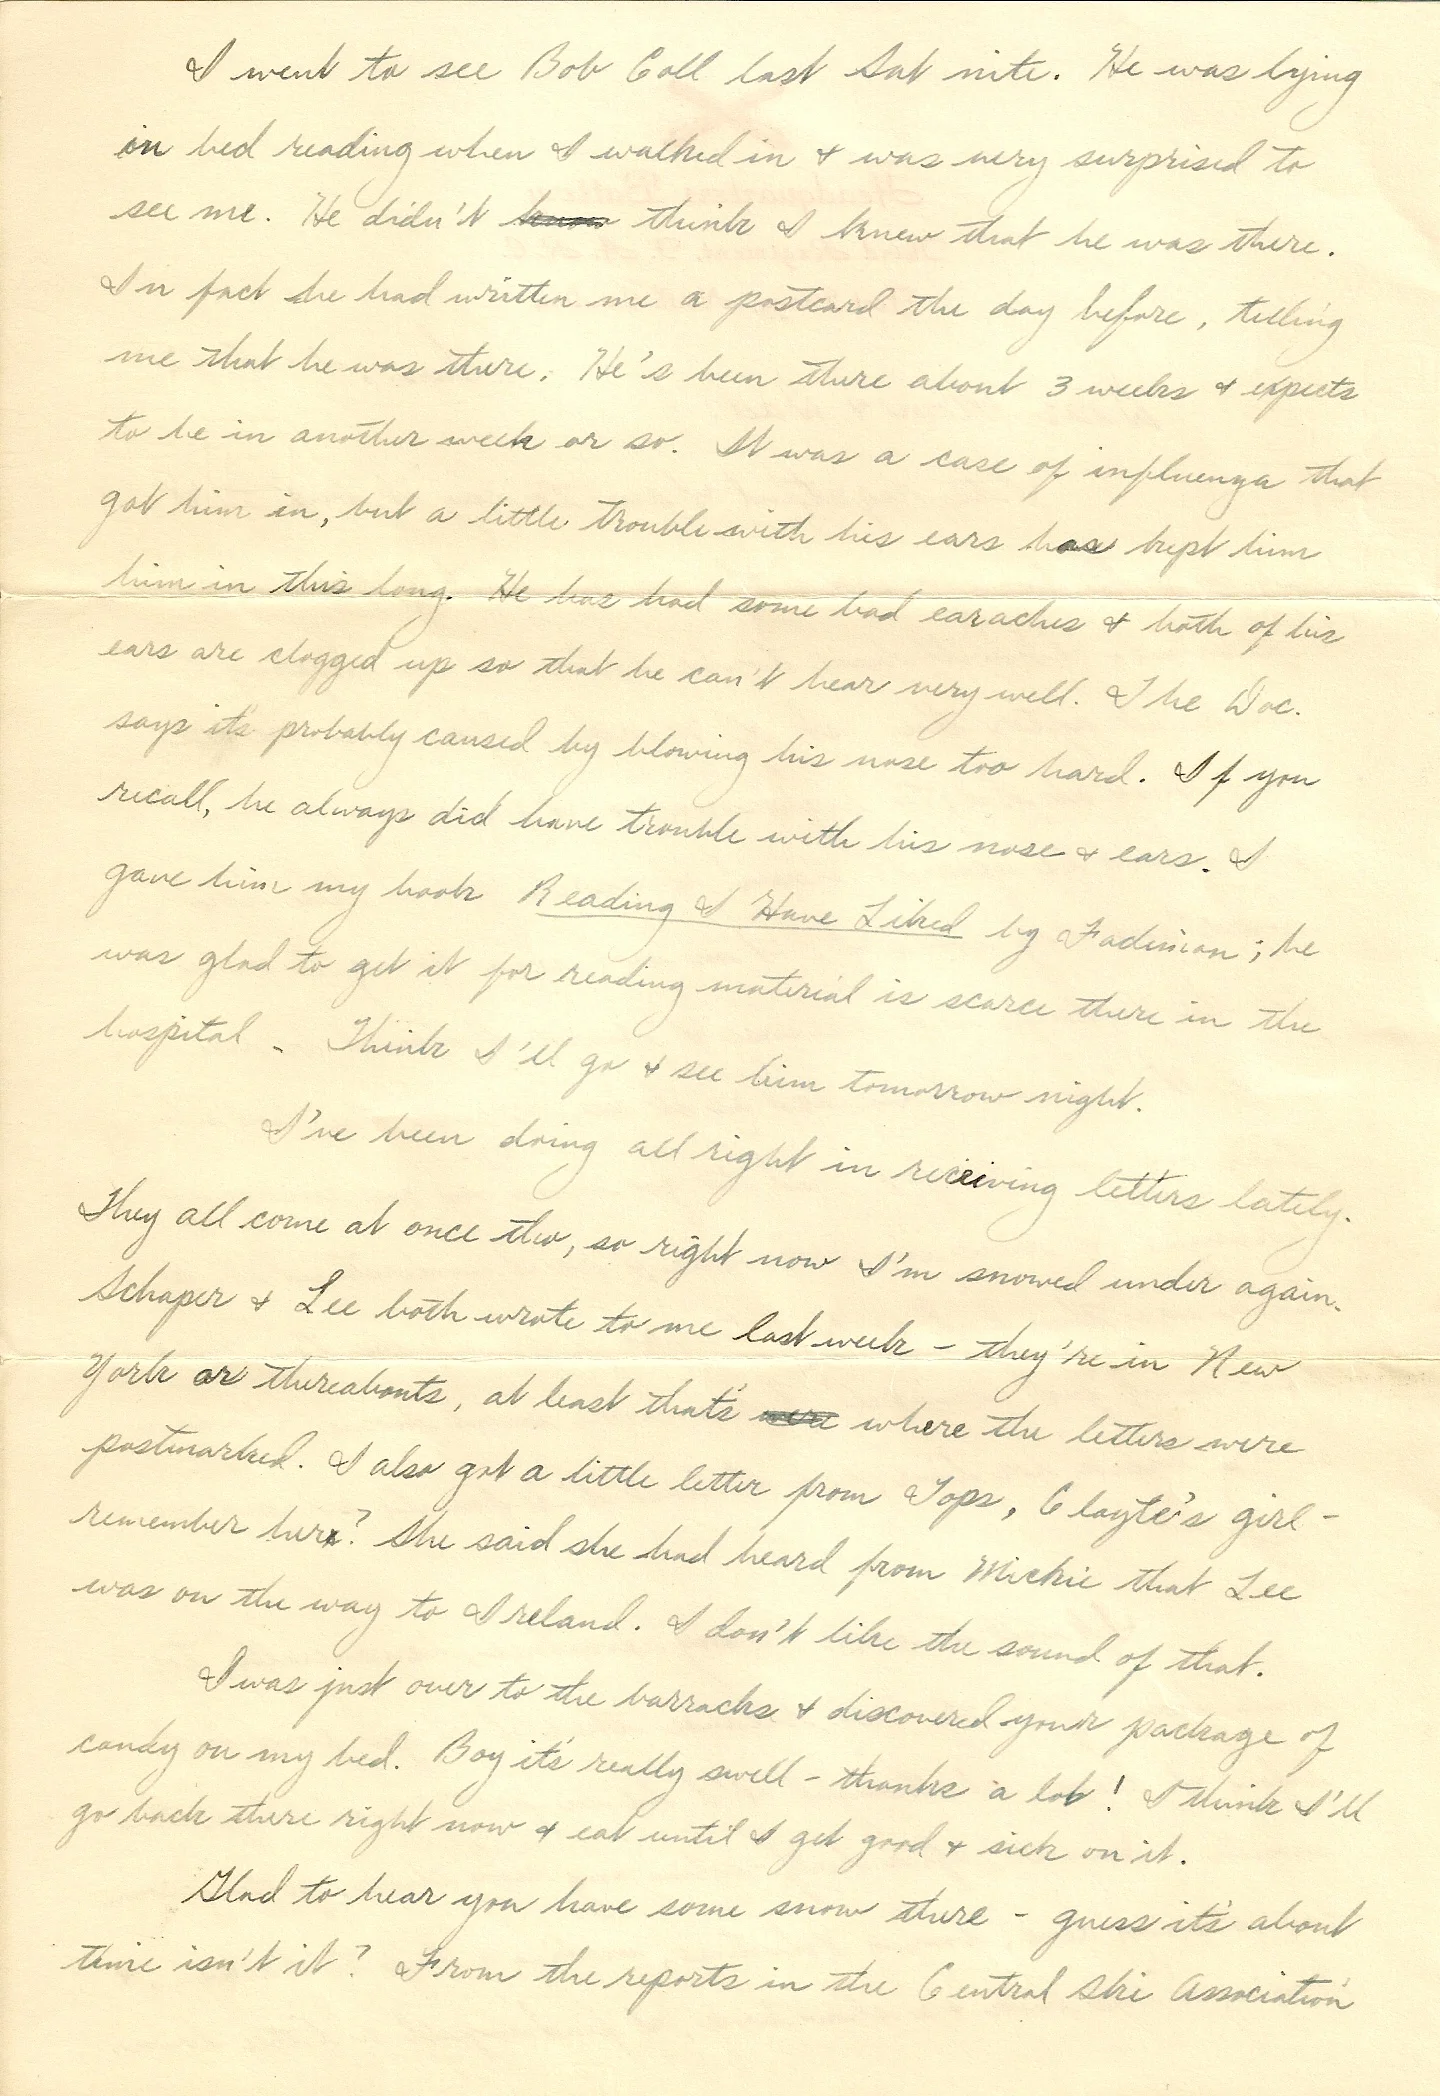 I went to see Bob Coll last Sat nite. He was lying
in bed reading when I walked in & was very surprised to
see me. He didn't know think I knew that he was there.
In fact he had written me a postcard the day before, telling
me that he was there. He's been there about 3 weeks & expects
to be in another week or so. It was a case of influenza that
got him in, but a little trouble with his ears has kept him
him in this long. He has had some bad earaches & both of his
ears are clogged up so that he can't hear very well. The Doc.
says it's probably caused by blowing his nose too hard. If you
recall, he always did have trouble with his nose & ears. I
gave him my book Reading I Have Liked by Fadiman; he
was glad to get it for reading material is scarce there in the
hospital - Think I'll go & see him tomorrow night.
I've been doing all right in receiving letters lately.
They all come at once tho, so right now I'm snowed under again.
Schaper & Lee both wrote to me last week - they're in New
York or thereabouts, at least that's were where the letters were
postmarked. I also got a little letter from Tops, Clayte's girl -
remember her? She said she had heard from Mickie that Lee
was on the way to Ireland. I don't like the sound of that.
I was just over to the barracks & discovered your package of
candy on my bed. Boy it's really swell - thanks a lot! I think I'll
go back there right now & eat until I get good & sick on it.
Glad to hear you have some snow there - guess it's about
time isn't it? From the reports in the Central Ski Association